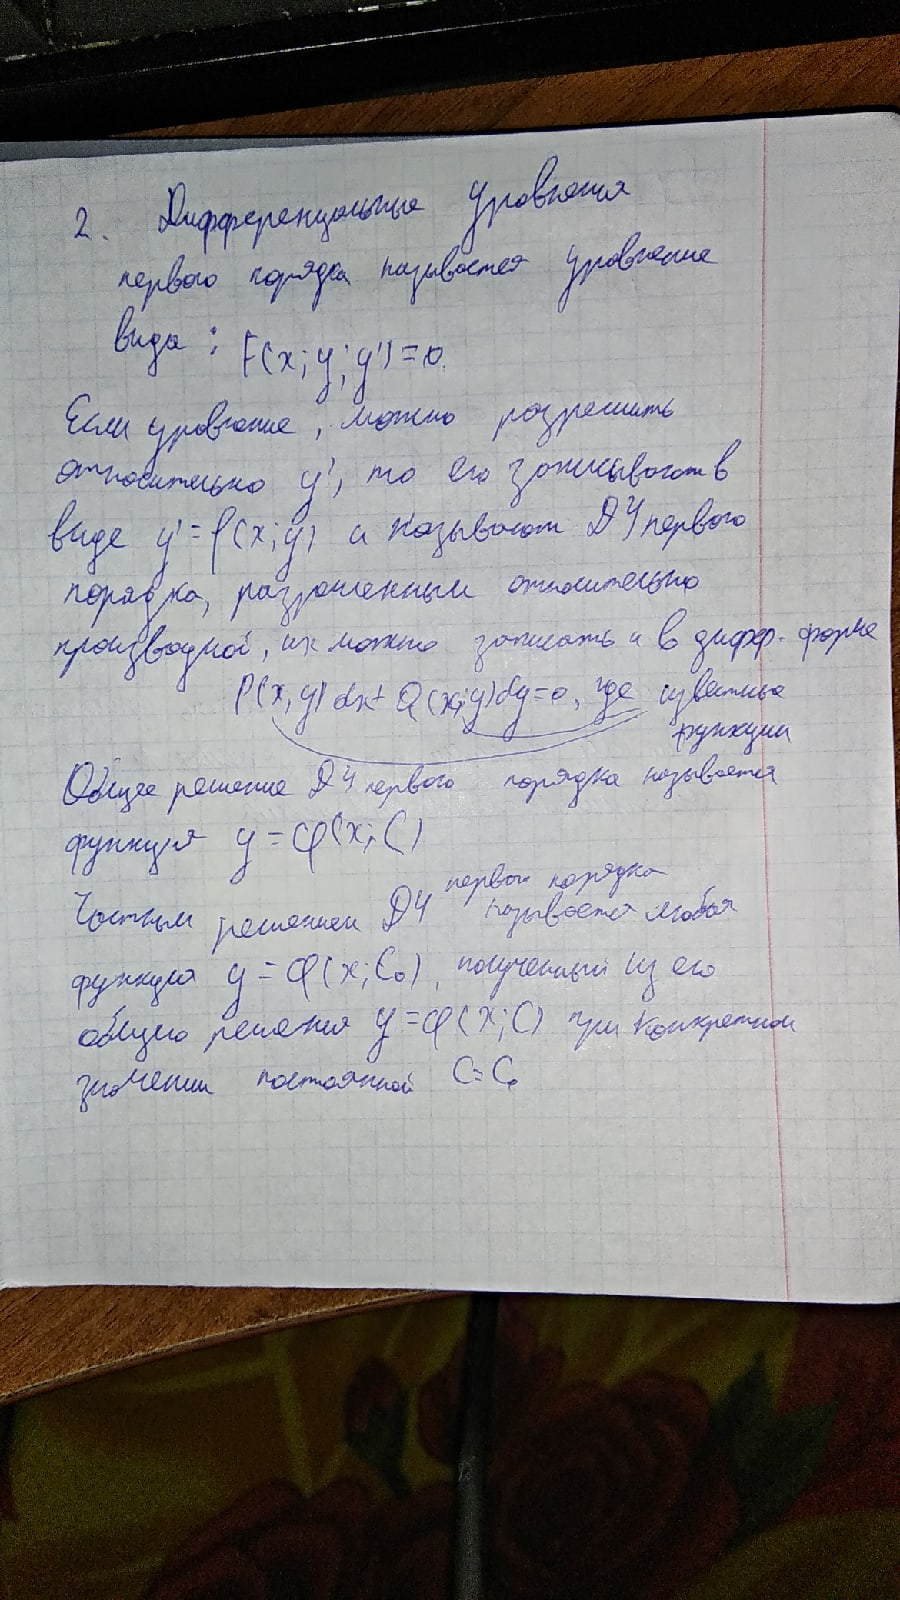 2. Дифференциальные Уровнения
первого порядка называется уровнение
вида : F(x; y; y') = 0.
Если уровнение, можно разрешить
относительно y', то его записывают в
виде y' = f(x; y) и называют ДУ первого
порядка, разрешенным относительно
производной, их можно записать и в дифф. форме
P(x, y) dx + Q(x; y) dy = 0, где
функции
Общее решение ДУ первого порядка называется
функция y = φ(x; C)
первого порядка
Частным решением ДУ называется любая
функция y = φ(x; C₀), полученный из его
общего решения y = φ(x; C) при конкретном
значении постоянной C = C₀